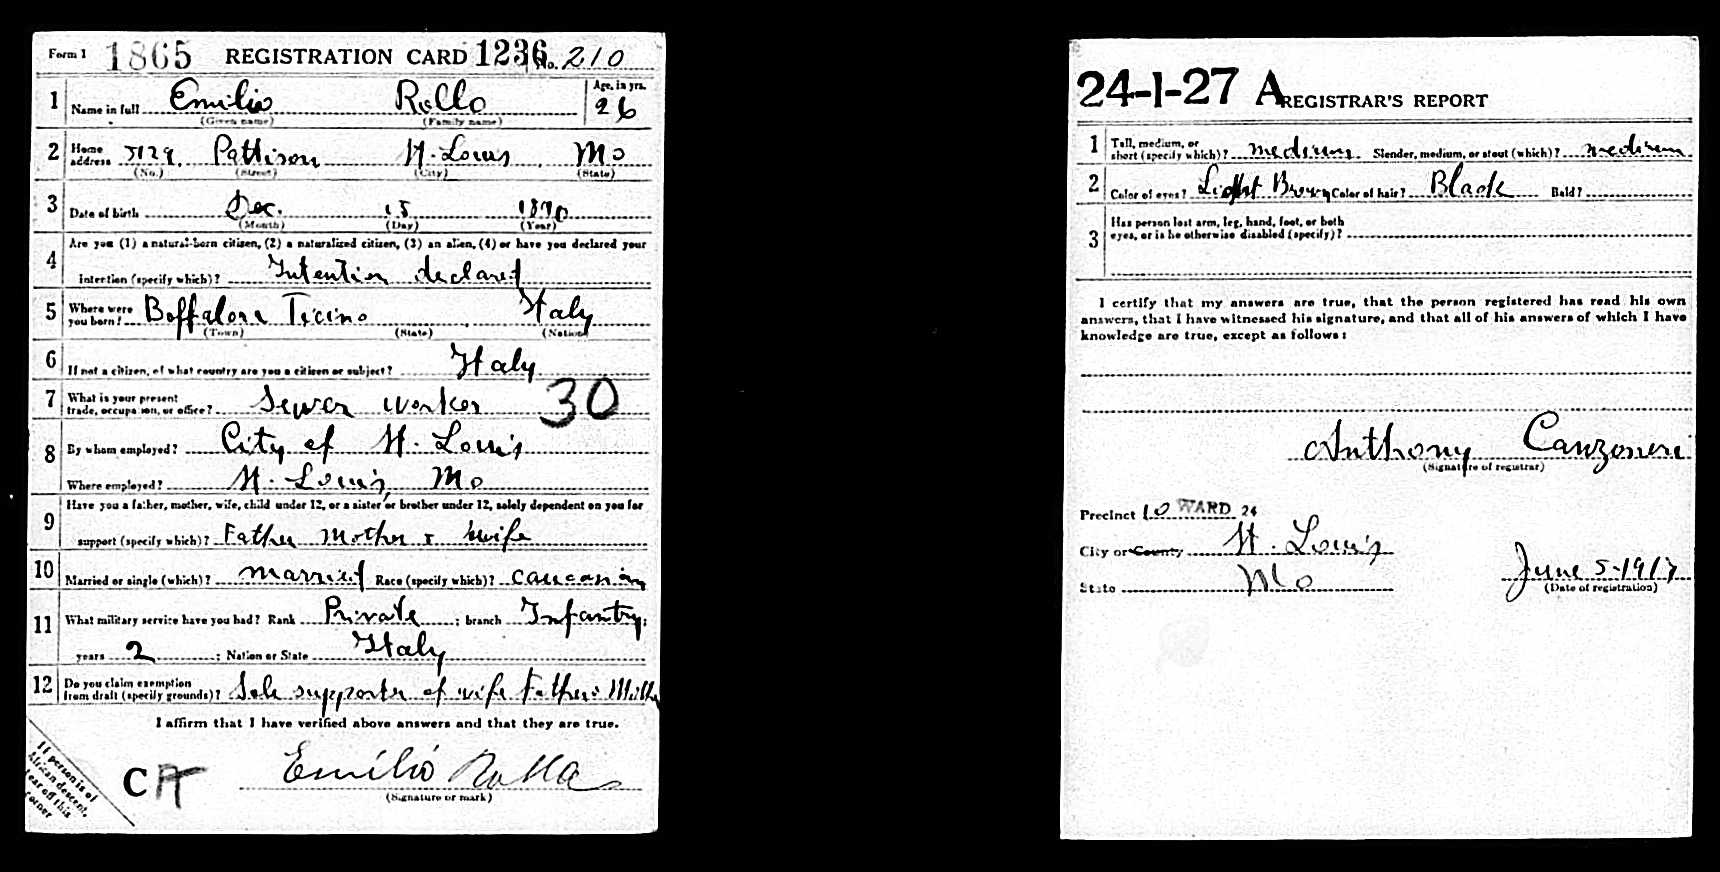 Form 1 1865 REGISTRATION CARD 1236 No. 210
1 Name in full Emilio Rollo Age, in yrs. 26
(Given name) (Family name)
2 Home address 5129 Pattison St. Louis Mo
(No.) (Street) (City) (State)
3 Date of birth Dec. 15 1890
(Month) (Day) (Year)
4 Are you (1) a natural-born citizen, (2) a naturalized citizen, (3) an alien, (4) or have you declared your
intention (specify which)? Intention declared
5 Where were you born? Boffalora Ticino Italy
(Town) (State) (Nation)
6 If not a citizen, of what country are you a citizen or subject? Italy
7 What is your present trade, occupation, or office? Sewer worker 30
8 By whom employed? City of St. Louis
Where employed? St. Louis, Mo
9 Have you a father, mother, wife, child under 12, or a sister or brother under 12, solely dependent on you for
support (specify which)? Father Mother & wife
10 Married or single (which)? married Race (specify which)? caucasian
11 What military service have you had? Rank Private ; branch Infantry ;
years 2 ; Nation or State Italy
12 Do you claim exemption from draft (specify grounds)? Sole supporter of wife Father & Mother
I affirm that I have verified above answers and that they are true.
If person is of
African descent,
tear off this
corner
C A
Emilio Rolla
(Signature or mark)
24-1-27 A REGISTRAR'S REPORT
1 Tall, medium, or short (specify which)? medium Slender, medium, or stout (which)? medium
2 Color of eyes? Light Brown Color of hair? Black Bald?
3 Has person lost arm, leg, hand, foot, or both
eyes, or is he otherwise disabled (specify)?
I certify that my answers are true, that the person registered has read his own
answers, that I have witnessed his signature, and that all of his answers of which I have
knowledge are true, except as follows:
Anthony Canzoneri
(Signature of registrar)
Precinct 10 WARD 24
City or County St. Louis
State Mo
June 5-1917
(Date of registration)